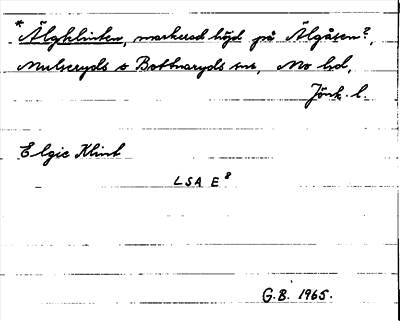 * Älgklinten, markerad höjd på Älgåsen?,
Mulseryds o Bottnaryds snr, Mo hd,
Jönk. l.
Elgie Klint
LSA E 8
G.B. 1965.